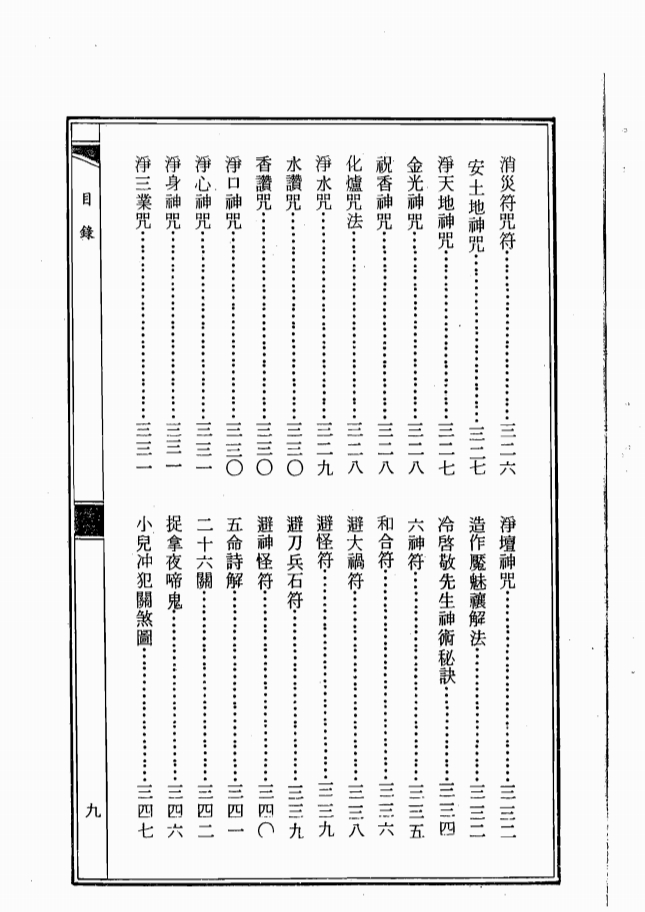 消災符咒符⋯⋯⋯⋯三二六
安土地神咒⋯⋯⋯⋯三二七
淨天地神咒⋯⋯⋯⋯三二七
金光神咒⋯⋯⋯⋯三二八
祝香神咒⋯⋯⋯⋯三二八
化爐咒法⋯⋯⋯⋯三二八
淨水咒⋯⋯⋯⋯三二九
水讚咒⋯⋯⋯⋯三三〇
香讚咒⋯⋯⋯⋯三三〇
淨口神咒⋯⋯⋯⋯三三〇
淨心神咒⋯⋯⋯⋯三三一
淨身神咒⋯⋯⋯⋯三三一
淨三業咒⋯⋯⋯⋯三三一
淨壇神咒⋯⋯⋯⋯三三二
造作魘魅禳解法⋯⋯⋯⋯三三二
冷啓敬先生神術秘訣⋯⋯⋯⋯三三四
六神符⋯⋯⋯⋯三三五
和合符⋯⋯⋯⋯三三六
避大禍符⋯⋯⋯⋯三三八
避怪符⋯⋯⋯⋯三三九
避刀兵石符⋯⋯⋯⋯三三九
避神怪符⋯⋯⋯⋯三四〇
五命詩解⋯⋯⋯⋯三四一
二十六關⋯⋯⋯⋯三四二
捉拿夜啼鬼⋯⋯⋯⋯三四六
小兒冲犯關煞圖⋯⋯⋯⋯三四七
目錄
九